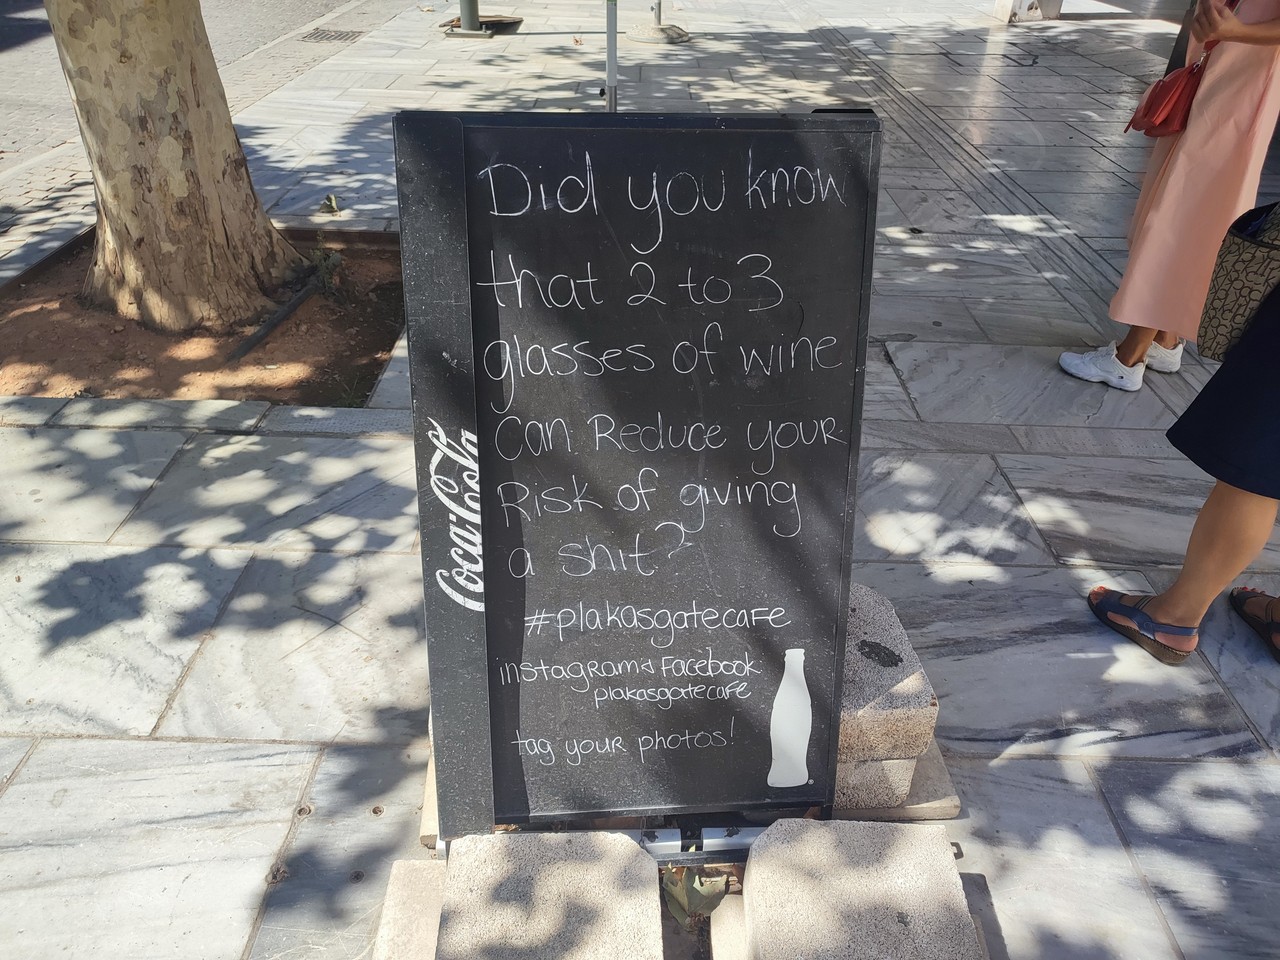 Did you know
that 2 to 3
glasses of wine
Can Reduce your
Risk of giving
a shit?
#plakasgatecafe
instagram & Facebook
plakasgatecafe
tag your photos!
Coca-Cola